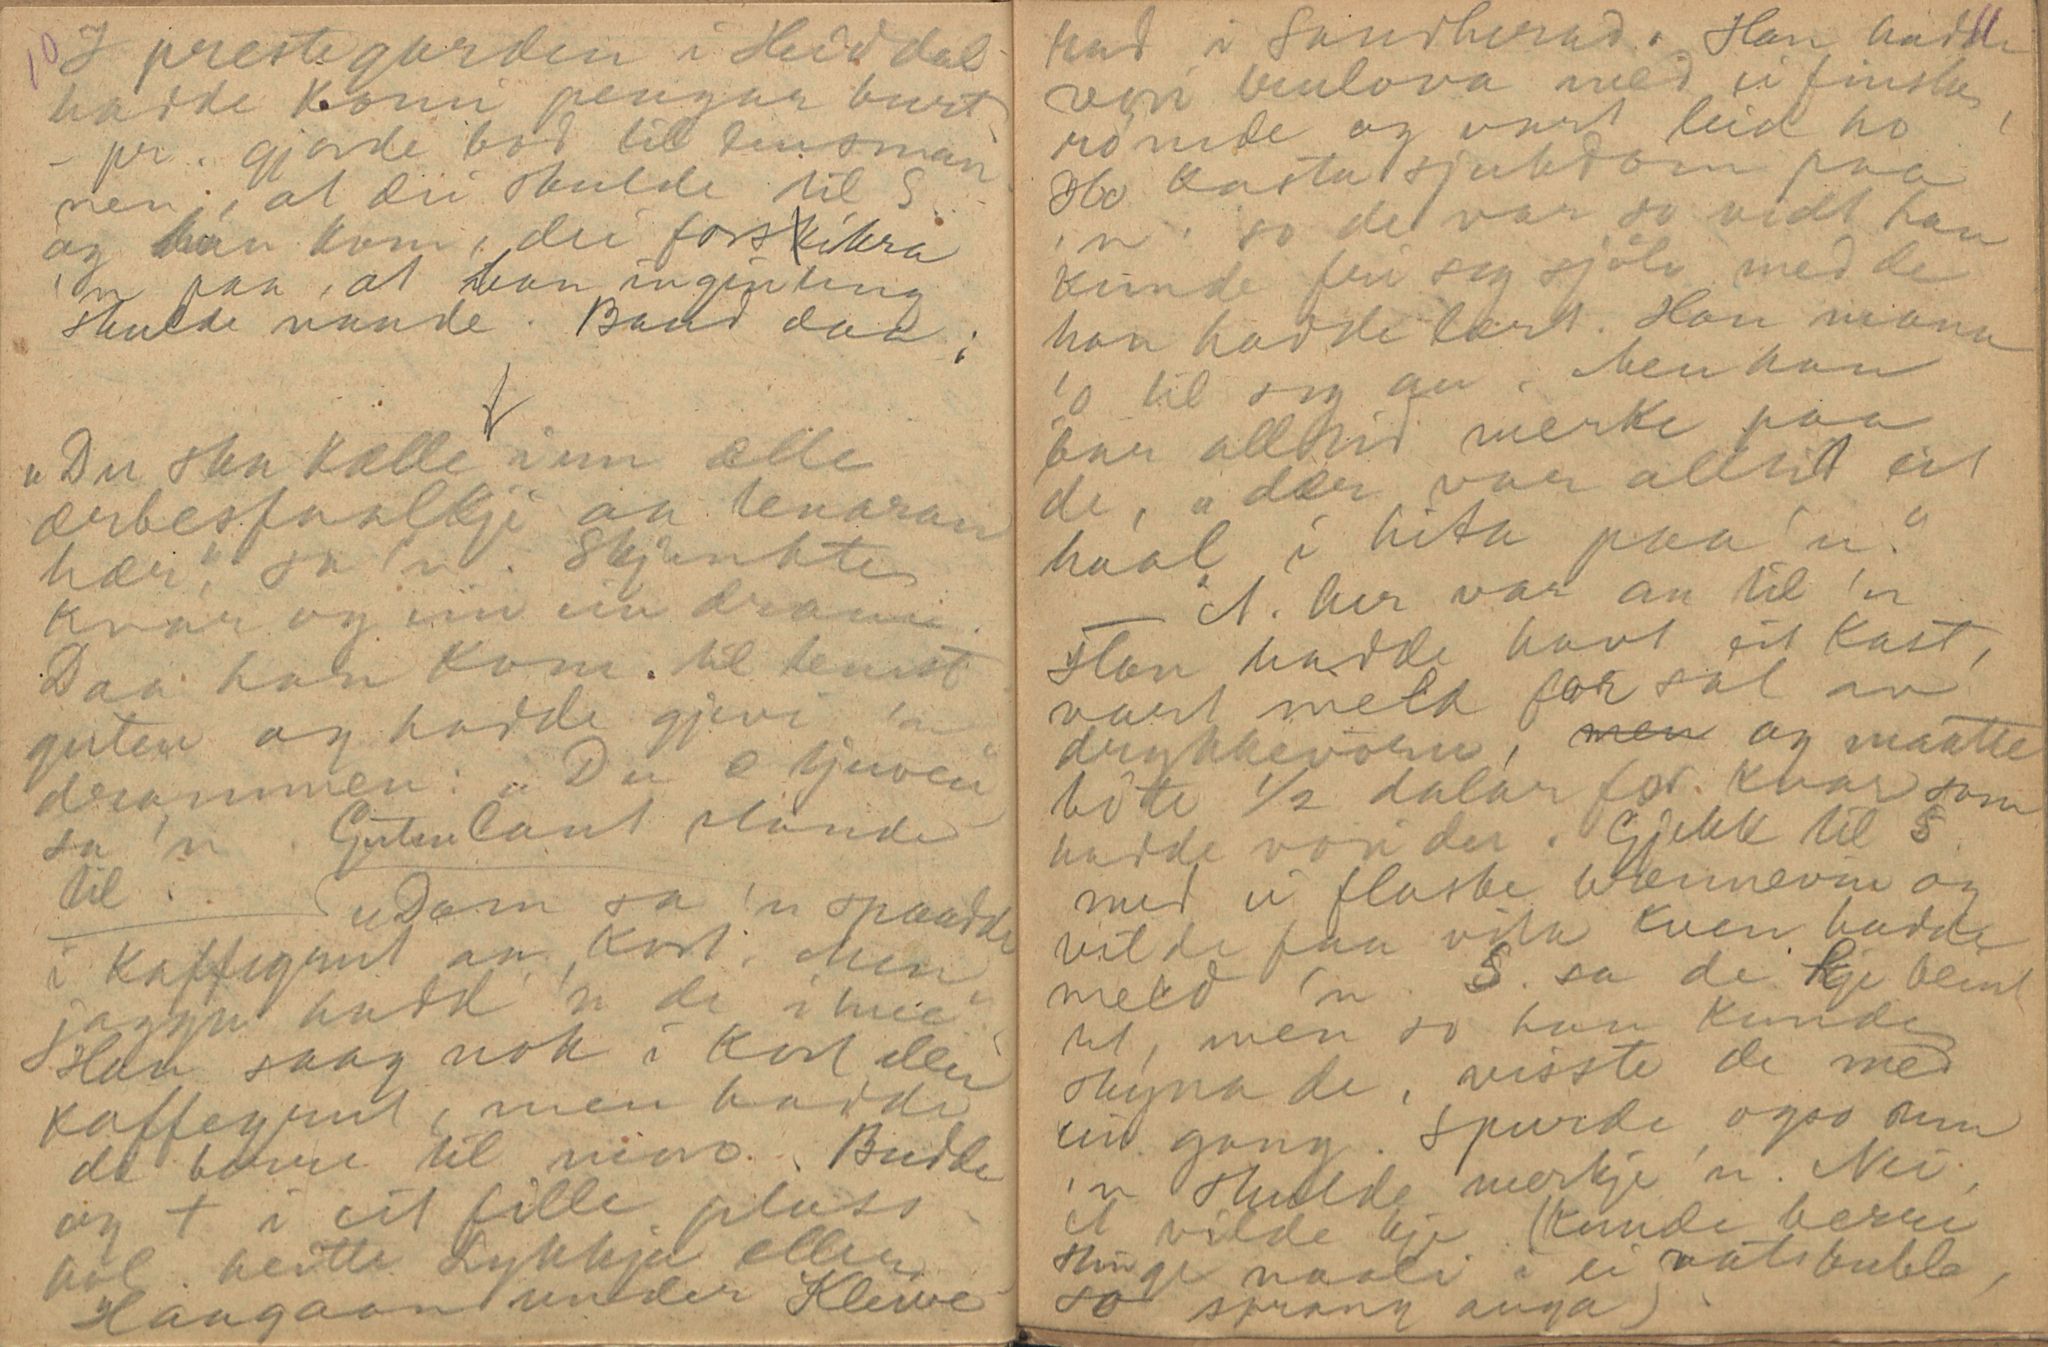 10
I prestegarden i Heiddal
hadde komi pengar burt
- pr. gjorde bod til lensman
nen, at dei skulde til S.
og han kom, dei forsikra
'n paa, at han inginting
skulde vande. Baud daa;
"Du ska kalle inn alle
arbesfaalkji aa tenaran
hær", sa 'n. Skjenkte
kvar og ein ein dram.
Daa han kom til tenest
guten og hadde gjevi 'n
drammen: "Du e tjuven"
sa 'n. Guten laut stande
til.
"Dæm sa 'n spaadde
i kaffegrut aa kort. Men
jaggu hadd 'n de i
Han saag nok i kort eller
kaffegrut, men hadde
de berre til moro. Budde
og + i eit fille plass
hol. heitte Lykkja eller
Haagaan under Kleive
11
had i Sandherad. Han hadde
vori trulova med ei finske,
rømde og vart leid ho
Ho kasta sjukdom paa
'n so de var so vidt han
kunde fri seg sjølv med de
han hadde lært. Han mana
'o til seg au. Men han
bar alltid merke paa
de, "dær var alltid eit
haal i hita paa 'n."
A. her var au til 'n
Han hadde havt eit kast,
vart meld for sal av
drykkevorur, men og maatte
bøte 1/2 dalar for kvar som
hadde vori der. Gjekk til S.
med ei flaske brennevin og
vilde faa vita kven hadde
meld 'n. S. sa de kje beint
ut, men so han kunde
skyna de, visste de med
ein gong. Spurde ogso um
'n skulde merkje 'n. Nei,
A vilde kje (kunde berre
stinge naali i ei vatsbubble,
so sprang auga).